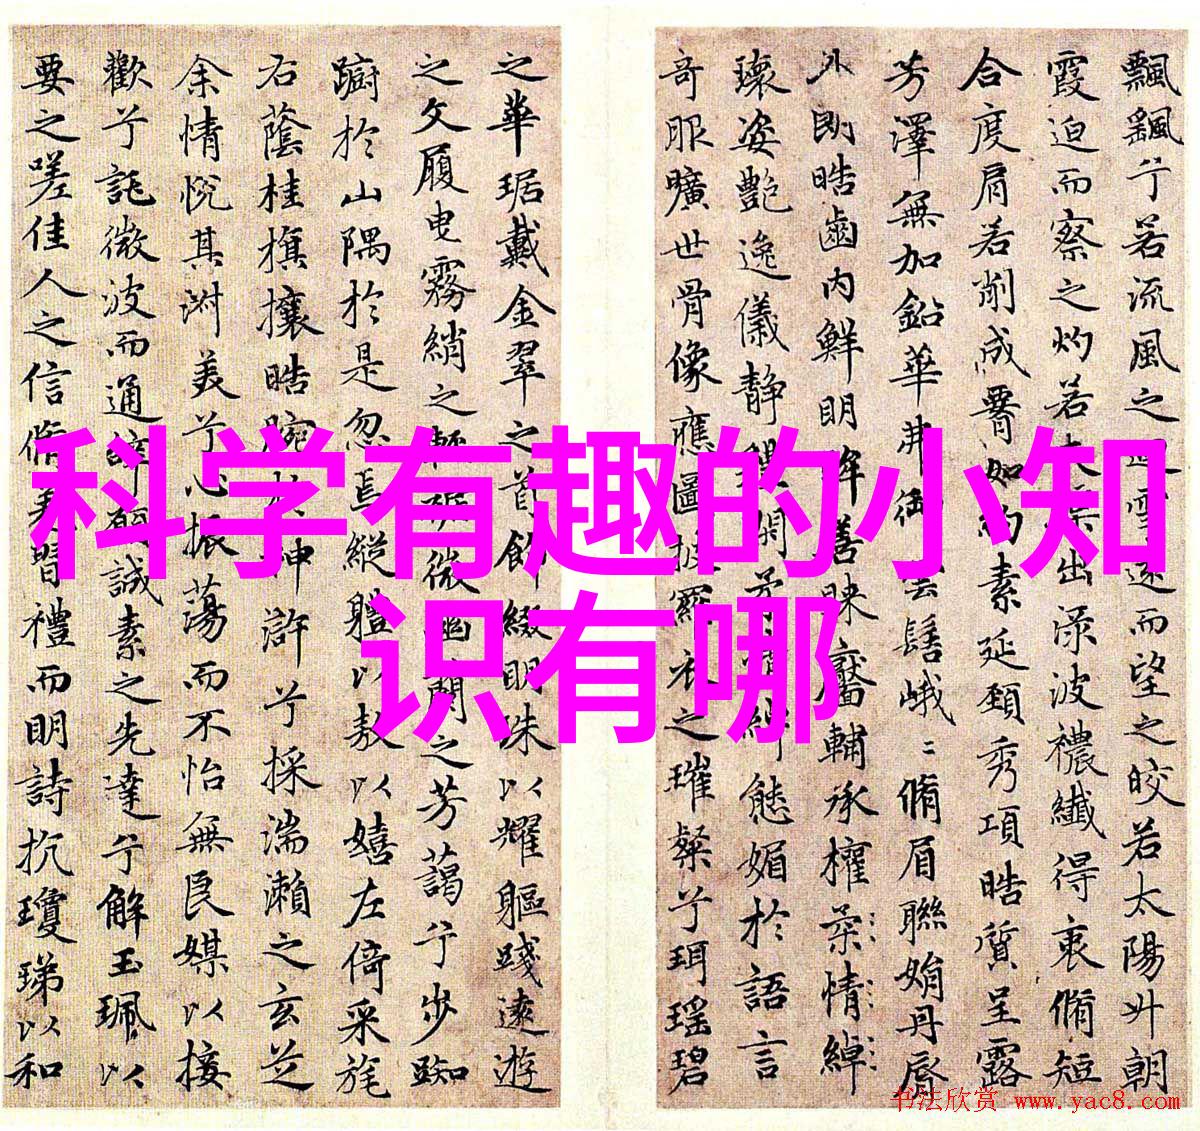 飄飖兮若流風之雪遠而望之皎若太陽升朝
霞迫而察之灼若出淥波禯纖得衷脩短
合度肩若削成腰如約素延頸秀項皓質呈露
芳澤無加鉛華弗御雲髻峨〻脩眉聯娟丹唇
外朗皓齒內鮮明眸善睞靨輔承權柔情綽
瓌姿艷逸儀靜閑綽態媚於語言
奇服曠世骨像應圖披羅衣之璀粲兮珥瑤碧
之華琚戴金翠之首飾綴明珠以耀軀踐遠遊
之文履曳霧綃之輕裾微幽蘭之芳藹兮步踟
躕於山隅於是忽焉縱軆以敖以嬉左倚采旄
右蔭桂旗攘皓腕於神滸兮採湍瀨之玄芝
余情悅其淑美兮心振蕩而不怡無良媒以接
歡兮託微波而通辭願誠素之先達兮解玉珮以
要之嗟佳人之信脩羌習禮而明詩抗瓊珶以和
科学有趣的小知
识有哪
书法欣赏 www.yac8.com